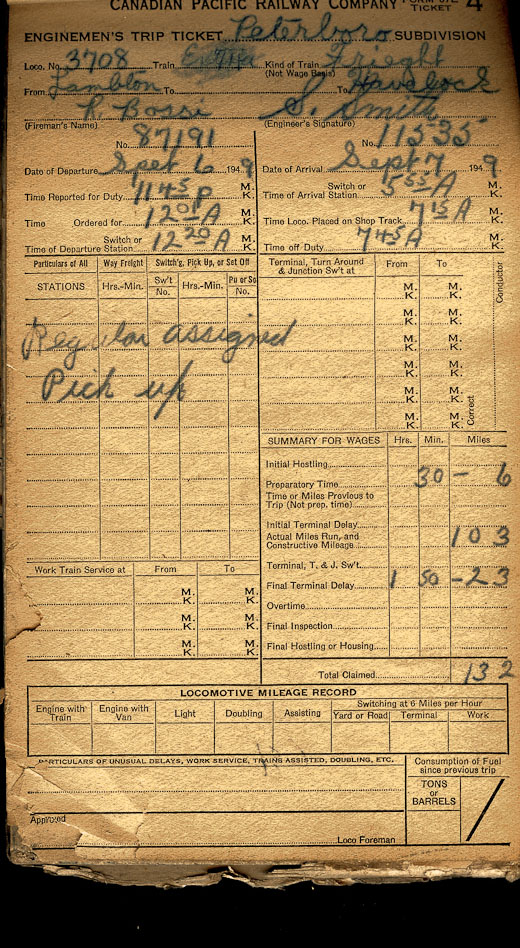 CANADIAN PACIFIC RAILWAY COMPANY FORM 87E TICKET 4
ENGINEMEN'S TRIP TICKET Peterboro SUBDIVISION
Loco. No. 3708 Train Extra Kind of Train (Not Wage Basis) Freight
From Lambton To To Havelock
R Bossi S. Smith
(Fireman's Name) (Engineer's Signature)
No. 87191 No. 11535
Date of Departure Sept 6 1949 Date of Arrival Sept 7 1949.
Time Reported for Duty 1145 P M. K. Switch or Time of Arrival Station 555 A M. K.
Time Ordered for 1201 A M. K. Time Loco. Placed on Shop Track 715 A M. K.
Switch or Time of Departure Station 1220 A M. K. Time off Duty 745 A M. K.
Particulars of All Way Freight Switch'g, Pick Up, or Set Off Terminal, Turn Around & Junction Sw't at From To Conductor
STATIONS Hrs.-Min. Sw't No. Hrs.-Min. Pu or So No. M. K. M. K.
M. K. M. K.
Regular assigned M. K. M. K.
M. K. M. K.
Pick up M. K. M. K.
M. K. M. K. Correct
SUMMARY FOR WAGES Hrs. Min. Miles
Initial Hostling
Preparatory Time 30 - 6
Time or Miles Previous to Trip (Not prep. time)
Initial Terminal Delay
Actual Miles Run, and Constructive Mileage 103
Terminal, T. & J. Sw't.
Final Terminal Delay 1 50 - 23
Overtime
Final Inspection
Final Hostling or Housing
Total Claimed 132
Work Train Service at From To
M. K. M. K.
M. K. M. K.
M. K. M. K.
LOCOMOTIVE MILEAGE RECORD
Engine with Train Engine with Van Light Doubling Assisting Switching at 6 Miles per Hour
Yard or Road Terminal Work
PARTICULARS OF UNUSUAL DELAYS, WORK SERVICE, TRAINS ASSISTED, DOUBLING, ETC. Consumption of Fuel since previous trip
TONS or BARRELS
Approved
Loco Foreman